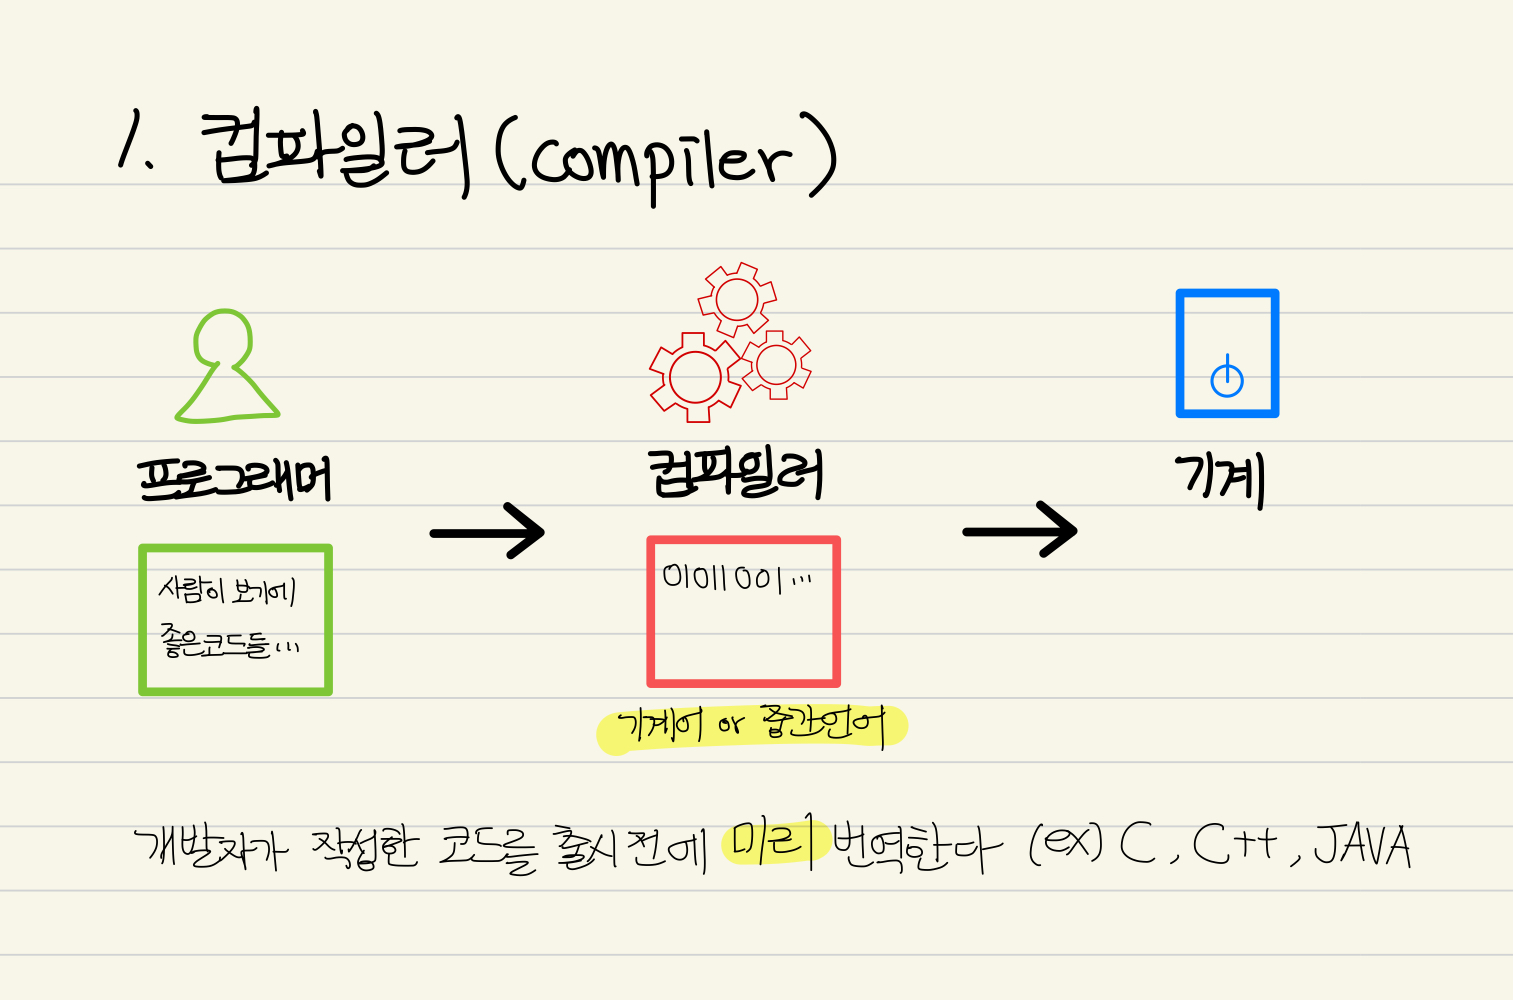 1. 컴파일러(compiler)
프로그래머
컴파일러
기계
사람이 보기에
좋은코드들...
01011001...
기계어 or 중간언어
개발자가 작성한 코드를 출시 전에 미리 번역한다 (ex) C, C++, JAVA